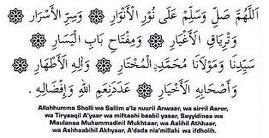 اَللّٰهُمَّ صَلِّ وَسَلِّمْ عَلَى نُوْرِ الْأَنْوَارِ ۞ وَسِرِّ الْأَسْرَارِ
۞ وَتِرْيَاقِ الْأَغْيَارِ ۞ وَمِفْتَاحِ بَابِ الْيَسَارِ ۞
سَيِّدِنَا وَمَوْلَانَا مُحَمَّدٍ الْمُخْتَارِ ۞ وَآلِهِ الْأَطْهَارِ
۞ وَأَصْحَابِهِ الْأَخْيَارِ ۞ عَدَدَ نِعَمِ اللّٰهِ وَإِفْضَالِهِ.
Allahhumma Sholli wa Sallim a'la nuuril Anwaar, wa sirril Asror,
wa Tiryaaqil A'yaar wa miftaahi baabil yasar, Sayyidinaa wa
Maulanaa Muhammadinil Mukhtaar, wa Aalihil Athhaar,
wa Ashhaabihil Akhyaar, A'dada nia'mallahi wa ifdholih.